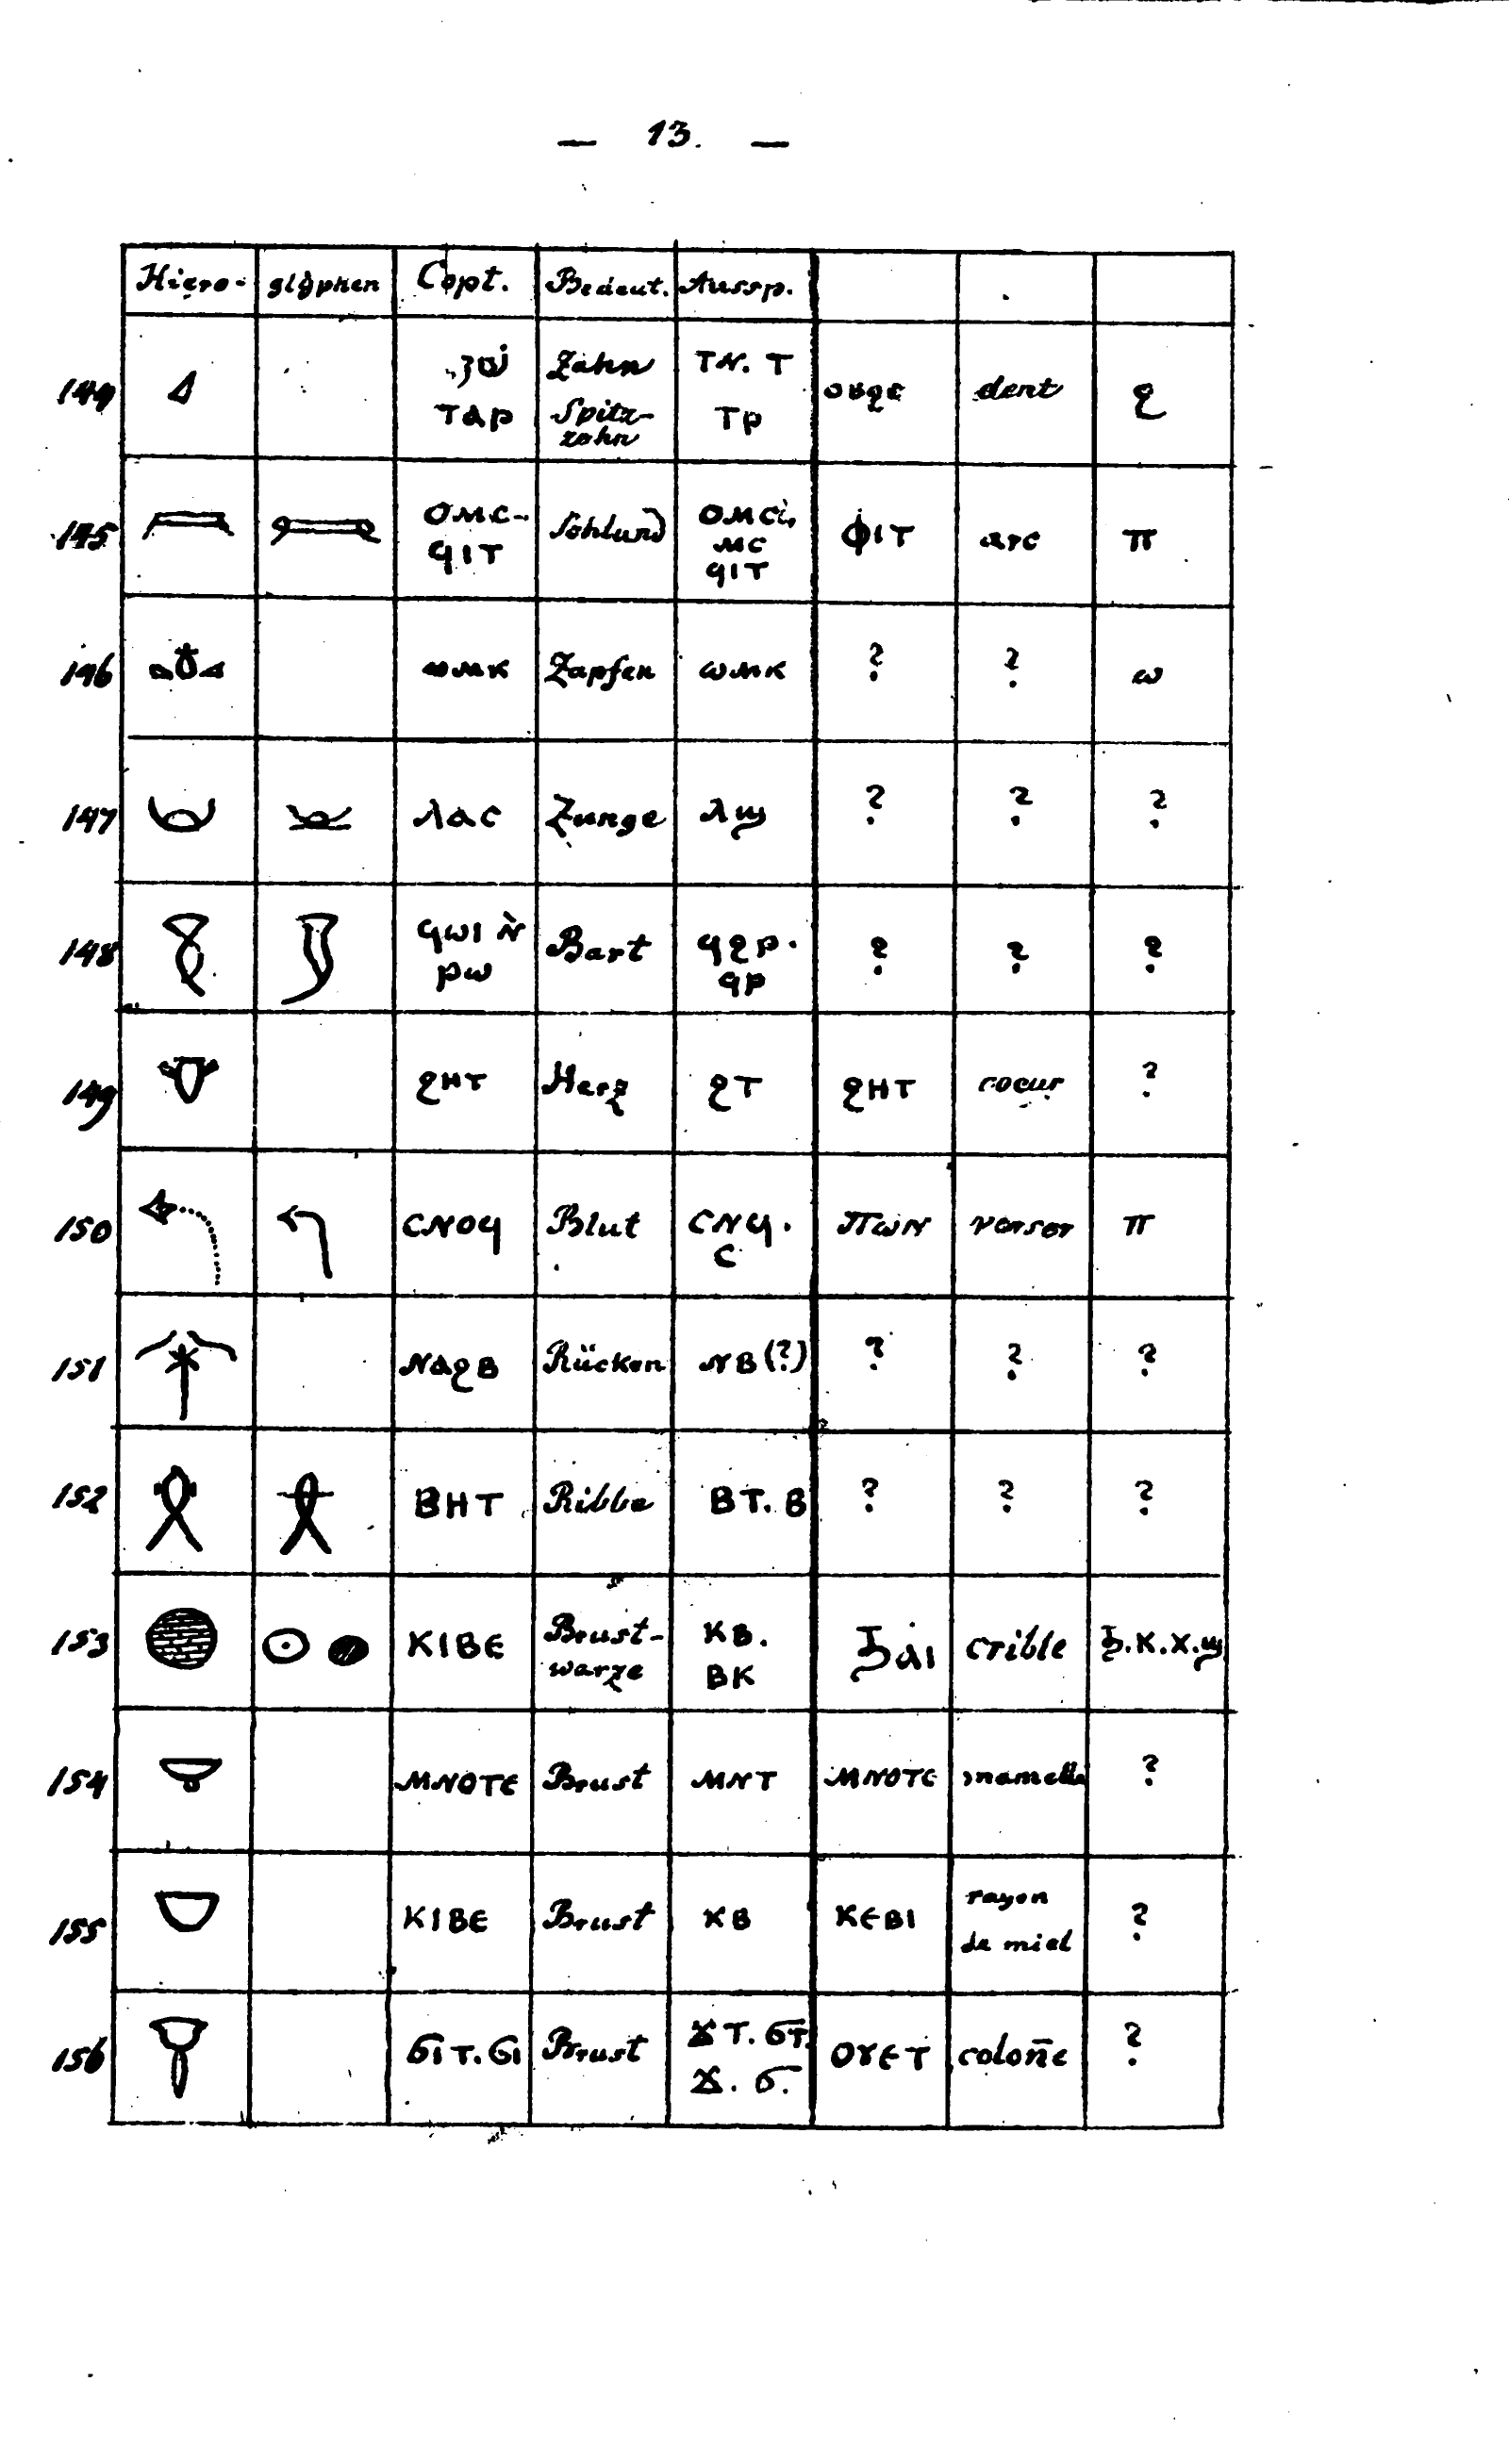 — 13. —
Hiero- glÿphen Copt. Bedeut. Aussp.
ⲧⲁⲣ Zahn Spitz- zahn ⲧⲛ. ⲧ ⲧⲣ ⲟⲃϩⲉ dent ϩ
145 ⲟⲙⲥ- ϥⲓⲧ Schlund ⲟⲙⲥ ⲙⲥ ϥⲓⲧ ⲫⲓⲧ arc ⲡ
146 ⲱⲙⲕ Zapfen ⲱⲙⲕ ? ? ⲱ
147 ⲗⲁⲥ Zunge ⲗϣ ? ? ?
148 ϥⲱⲓ ⲛ̀ ⲣⲱ Bart ϥϩⲣ. ϥⲣ ? ? ?
149 ϩⲏⲧ Herz ϩⲧ ϩⲏⲧ coeur ?
150 ⲥⲛⲟϥ Blut ⲥⲛϥ. ⲥ ⲡⲱⲛ verser ⲡ
151 ⲛⲁϩⲃ Rücken ⲛⲃ (?) ? ? ?
152 ⲃⲏⲧ Ribbe ⲃⲧ. ⲃ ? ? ?
153 ⲕⲓⲃⲉ Brust- warze ⲕⲃ. ⲃⲕ ϧⲁⲓ crible ϧ.ⲕ.ⲭ.ϣ
154 ⲙⲛⲟⲧⲉ Brust ⲙⲛⲧ ⲙⲛⲟⲧⲉ mamelle ?
155 ⲕⲓⲃⲉ Brust ⲕⲃ ⲕⲉⲃⲓ rayon de miel ?
156 ϭⲓⲧ. ϭⲓ Brust ϫⲧ. ϭⲧ. ϫ. ϭ. ⲟⲩⲉⲧ coloñe ?